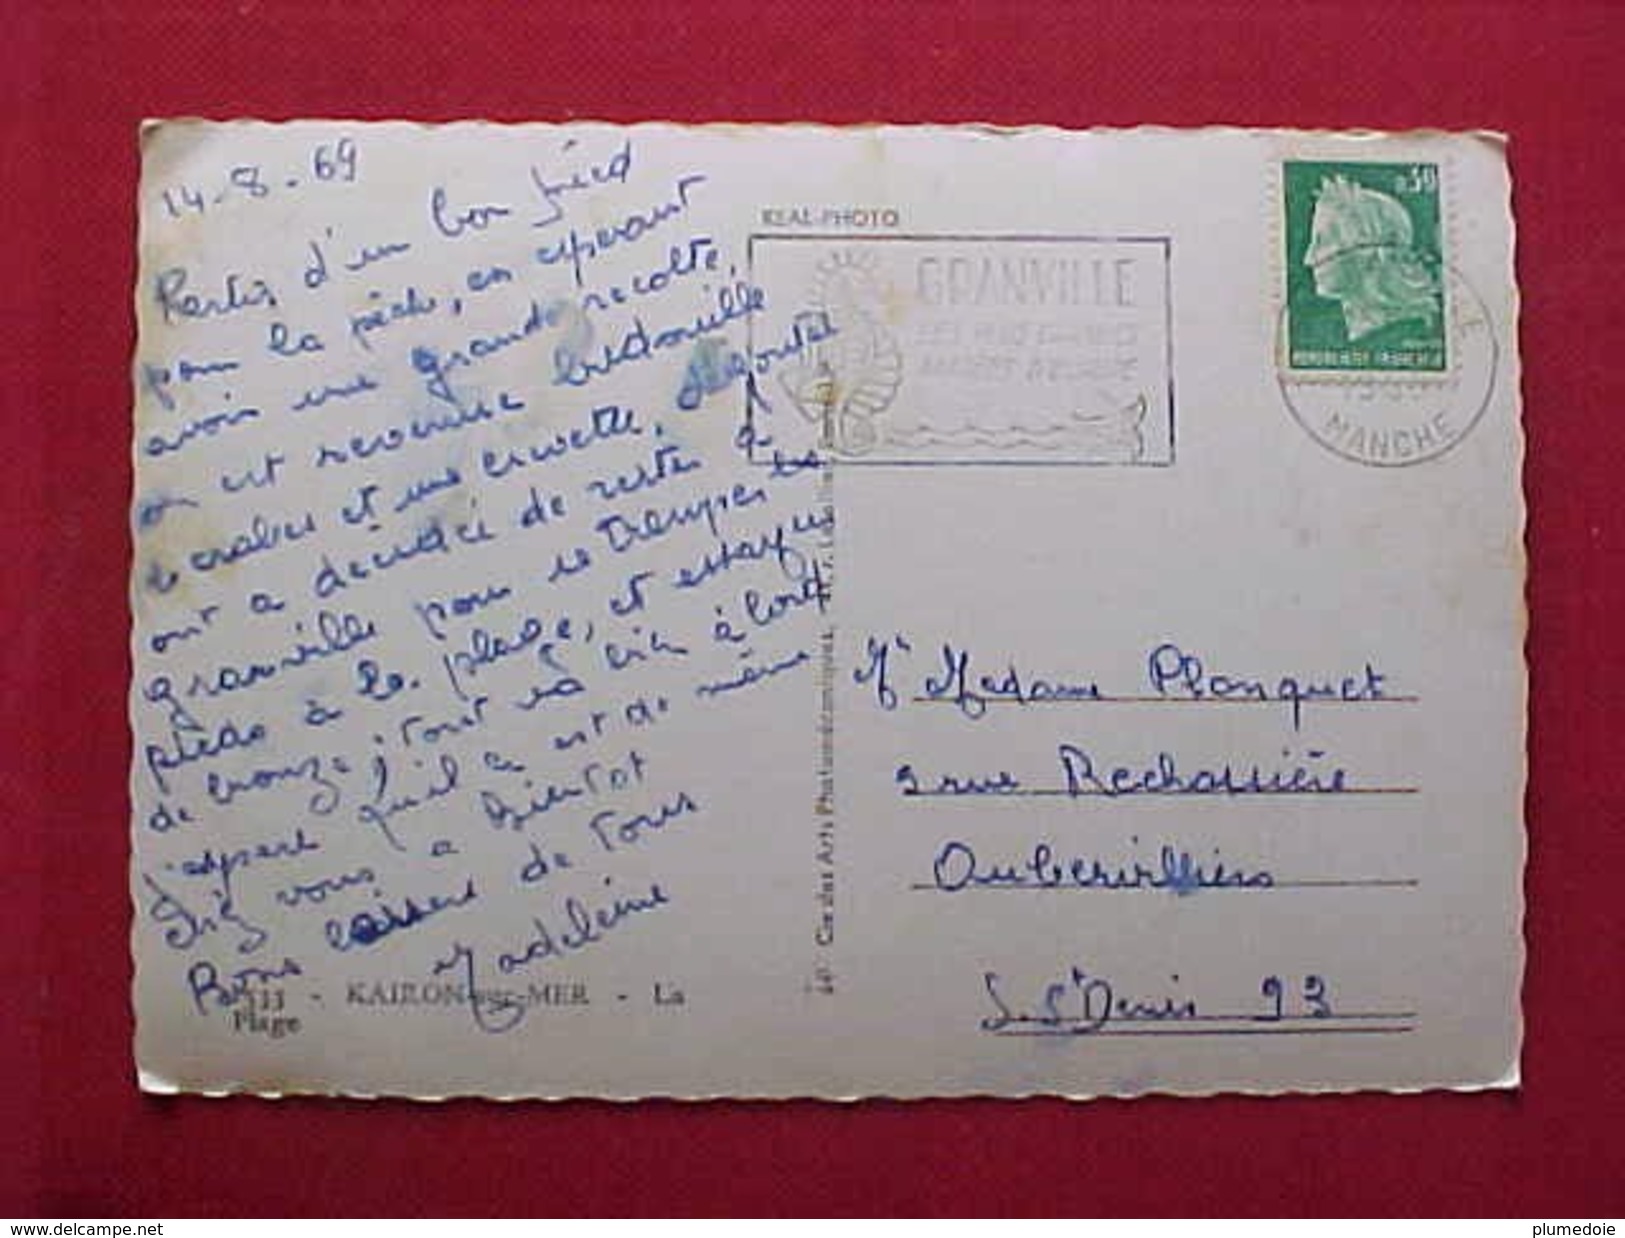 14-8-69
Partis d'un bon pied
pour la pêche, en espérant
avoir une grande récolte,
on est revenue bredouille
crabes et une crevette,
ont a décidée de rester à
granville pour se tremper les
pieds à la plage, et essayer
de bronzé, tout va bien à bord
j'espère qu'il en est de même
chez vous a bientot
Bons baisers de tous
Madeleine
111 - KAIRON-sur-MER - La
Plage
REAL-PHOTO
GRANVILLE
MANCHE
0,30
REPUBLIQUE FRANCAISE
Cie des Arts Photomécaniques
Mr Madame Planquet
2 rue Rechossière
Aubervilliers
S. St Denis 93
www.delcampe.net
plumedoie